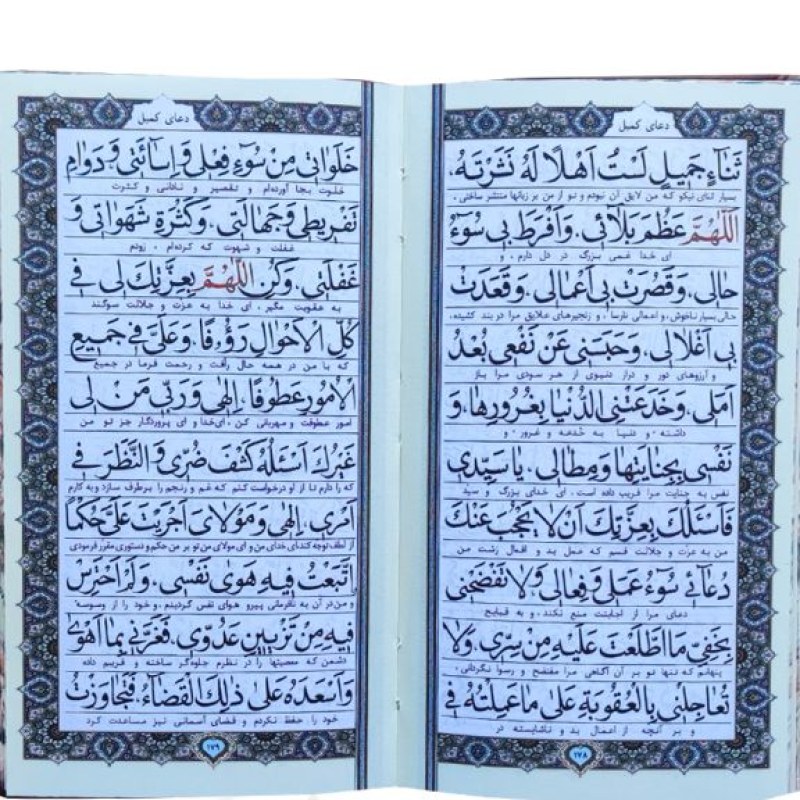 دعای کمیل
ثَنآءٍ جَمیلٍ لَسْتُ اَهْلًا لَهُ نَشَرْتَهُ،
بسیار ثنای نیکو که من لایق آن نبودم و تو از من بر زبانها منتشر ساختی،
اَللّهُمَّ عَظُمَ بَلائی، وَاَفْرَطَ بی سُوءُ
ای خدا غمی بزرگ در دل دارم، و
حالی، وَقَصُرَتْ بی اَعْمالی، وَقَعَدَتْ
حالی بسیار ناخوش، و اعمالی نارسا، و زنجیرهای علایق مرا در بند کشیده،
بی اَغْلالی، وَحَبَسَنی عَنْ نَفْعی بُعْدُ
و آرزوهای دور و دراز دنیوی از هر سودی مرا باز
اَمَلی، وَخَدَعَتْنِی الدُّنْیا بِغُرُورِها، وَ
داشته، و دنیا به خدعه و غرور، و
نَفْسی بِجِنایَتِها وَمِطالی، یا سَیِّدی
نفس به جنایت مرا فریب داده است، ای خدای بزرگ و سید
فَاَسْئَلُكَ بِعِزَّتِكَ اَنْ لا یَحْجُبَ عَنْكَ
من به عزت و جلالت قسم که عمل بد و افعال زشت من
دُعآئی سُوءُ عَمَلی وَفِعالی، وَلا تَفْضَحْنی
دعای مرا از اجابتت منع نکند، و به قبایح
بِخَفِیِّ مَا اطَّلَعْتَ عَلَیْهِ مِنْ سِرّی، وَلا
پنهانم که تنها تو بر آن آگاهی مرا مفتضح و رسوا نگردانی،
تُعاجِلْنی بِالْعُقُوبَةِ عَلی ما عَمِلْتُهُ فی
و بر آنچه از اعمال بد و ناشایسته در
۱۷۸
دعای کمیل
خَلَواتی مِنْ سُوءِ فِعْلی وَاِسائَتی، وَدَوامِ
خلوت بجا آورده‌ام و تقصیر و نادانی و کثرت
تَفْریطی وَجَهالَتی، وَکَثْرَةِ شَهَواتی وَ
غفلت و شهوت که کرده‌ام، زودم
غَفْلَتی، وَکُنِ اللّهُمَّ بِعِزَّتِكَ لی فی
به عقوبت مگیر، ای خدا به عزت و جلالت سوگند
کُلِّ الْاَحْوالِ رَؤُفًا، وَعَلَیَّ فی جَمیعِ
که با من در همه حال رأفت و رحمت فرما در جمیع
الْاُمُورِ عَطُوفًا، اِلهی وَرَبّی مَنْ لی
امور عطوفت و مهربانی کن، ای خدا و ای پروردگار جز تو من
غَیْرُكَ اَسْئَلُهُ کَشْفَ ضُرّی وَالنَّظَرَ فی
که را دارم تا از او درخواست کنم که غم و رنجم را برطرف سازد و به کارم
اَمْری، اِلهی وَمَوْلایَ اَجْرَیْتَ عَلَیَّ حُکْمًا
از لطف توجه کند ای خدای من و ای مولای من تو بر من حکم و دستوری مقرر فرمودی
اِتَّبَعْتُ فیهِ هَوی نَفْسی، وَلَمْ اَحْتَرِسْ
و من در آن به نافرمانی پیرو هوای نفس گردیدم، و خود را از وسوسه
فیهِ مِنْ تَزْیینِ عَدُوّی، فَغَرَّنی بِما اَهْوی
دشمن که معصیتها را در نظرم جلوه‌گر ساخته و فریبم داده
وَاَسْعَدَهُ عَلی ذلِكَ الْقَضآءُ، فَتَجاوَزْتُ
خود را حفظ نکردم و قضای آسمانی نیز مساعدت کرد
۱۷۹